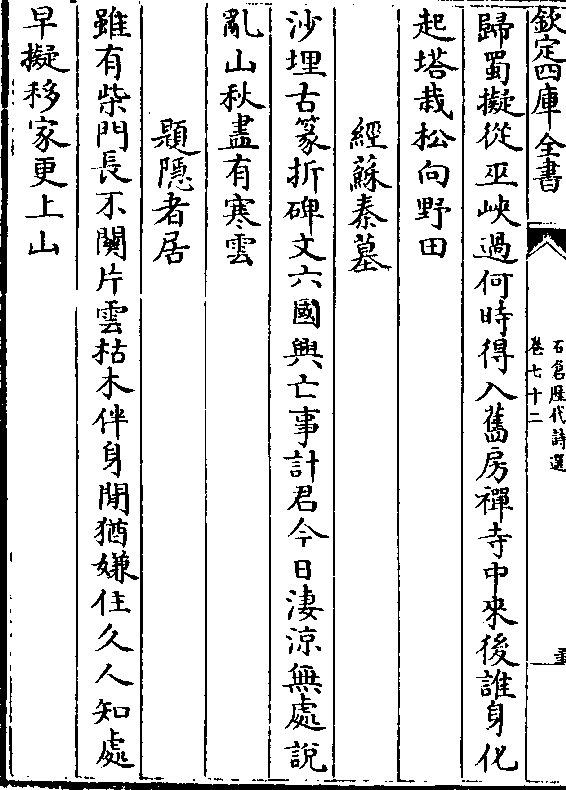 欽定四庫全書
石倉歷代詩選
卷七十二
歸蜀擬從巫峽過何時得入舊房禪寺中來後誰身化
起塔栽松向野田
經蘇秦墓
沙埋古篆折碑文六國興亡事計君今日淒涼無處說
亂山秋盡有寒雲
題隱者居
雖有柴門長不關片雲枯木伴身閒猶嫌住久人知處
早擬移家更上山